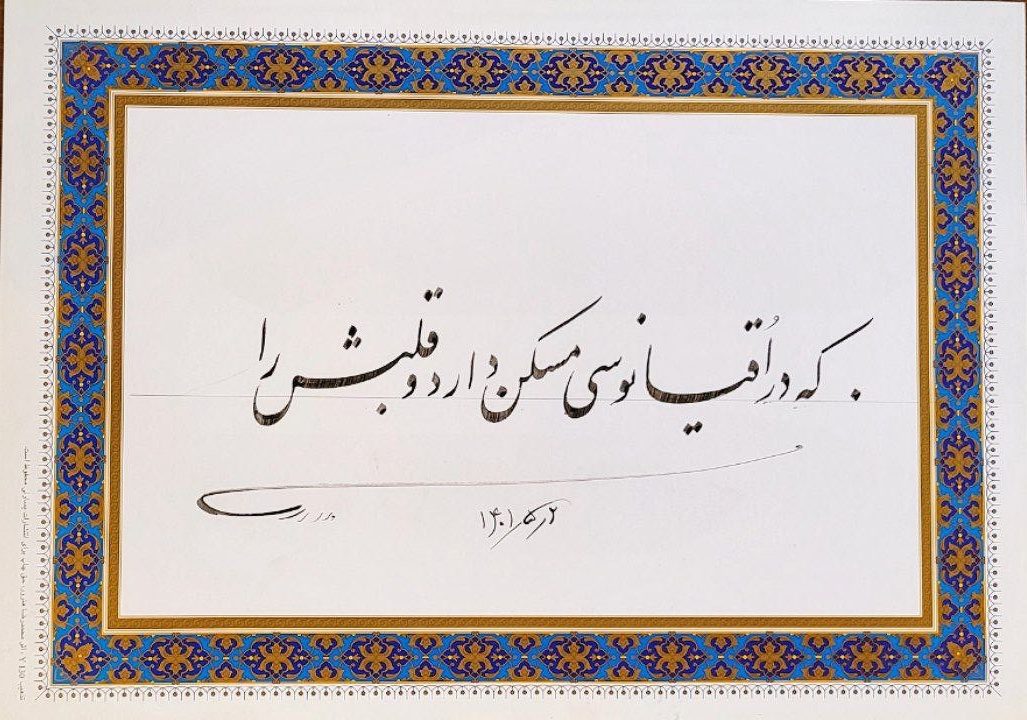 . که در اُقیانوسی مسکن دارد و قلبش را
۱۴۰۱/۵/۲